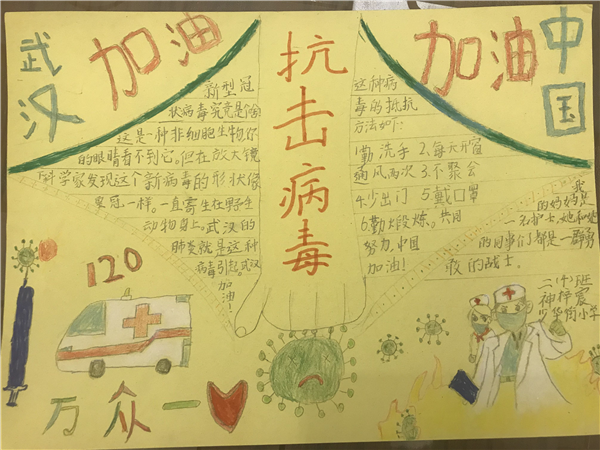 武汉
加油
抗击病毒
加油
中国
新型冠
状病毒究竟是啥
这是一种非细胞生物你
的眼睛看不到它。但在放大镜
科学家发现这个新病毒的形状像
皇冠一样。一直寄生在野生
动物身上。武汉的
肺炎就是这种
病毒引起。武汉
加油!
这种病
毒的抵抗
方法如下:
1勤洗手 2、每天开窗
通风两次 3、不聚会
4、少出门 5、戴口罩
6、勤火段炼。共同
努力,中国
加油!
我
的妈妈是
一名护士,她和她
的同事们都是一群勇
敢的战士。
二(4)班
小学
120
万众一